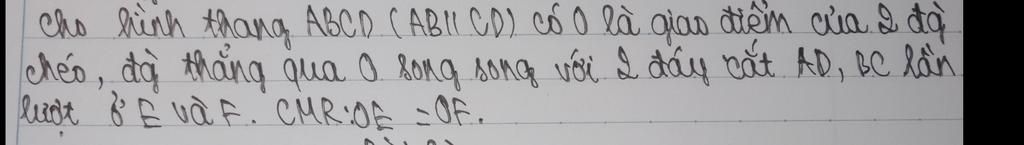 cho hình thang ABCD (AB//CD) có O là giao điểm của 2 đg
chéo, đg thẳng qua O song song với 2 đáy cắt AD, BC lần
lượt ở E và F. CMR: OE = OF.